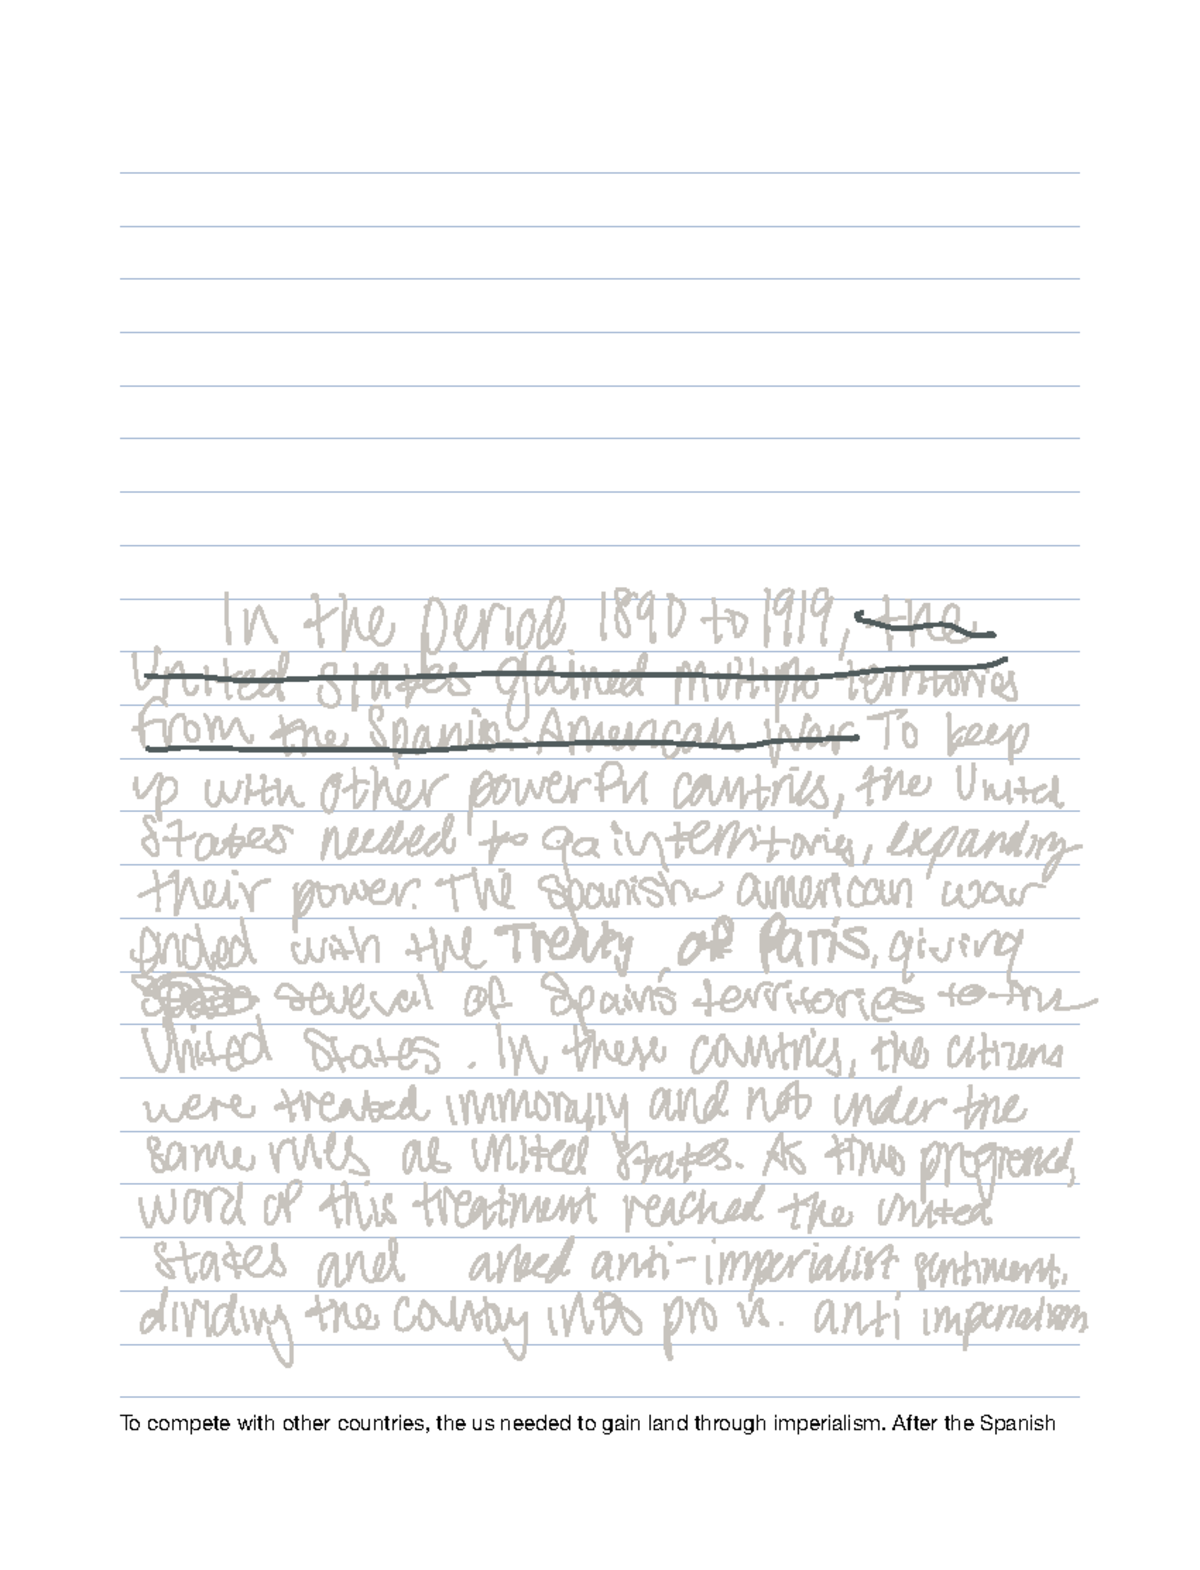 In the period 1890 to 1919, the
United States gained multiple territories
from the Spanish American War To keep
up with other powerful countries, the United
States needed to gain territories, expanding
their power. The Spanish american war
ended with the Treaty of Paris, giving
several of Spain's territories to the
United States. In these countries, the citizens
were treated immorally and not under the
same rules as United States. As this progressed,
word of this treatment reached the United
States and anti-imperialist sentiment,
dividing the country into pro vs. anti imperialism
To compete with other countries, the us needed to gain land through imperialism. After the Spanish